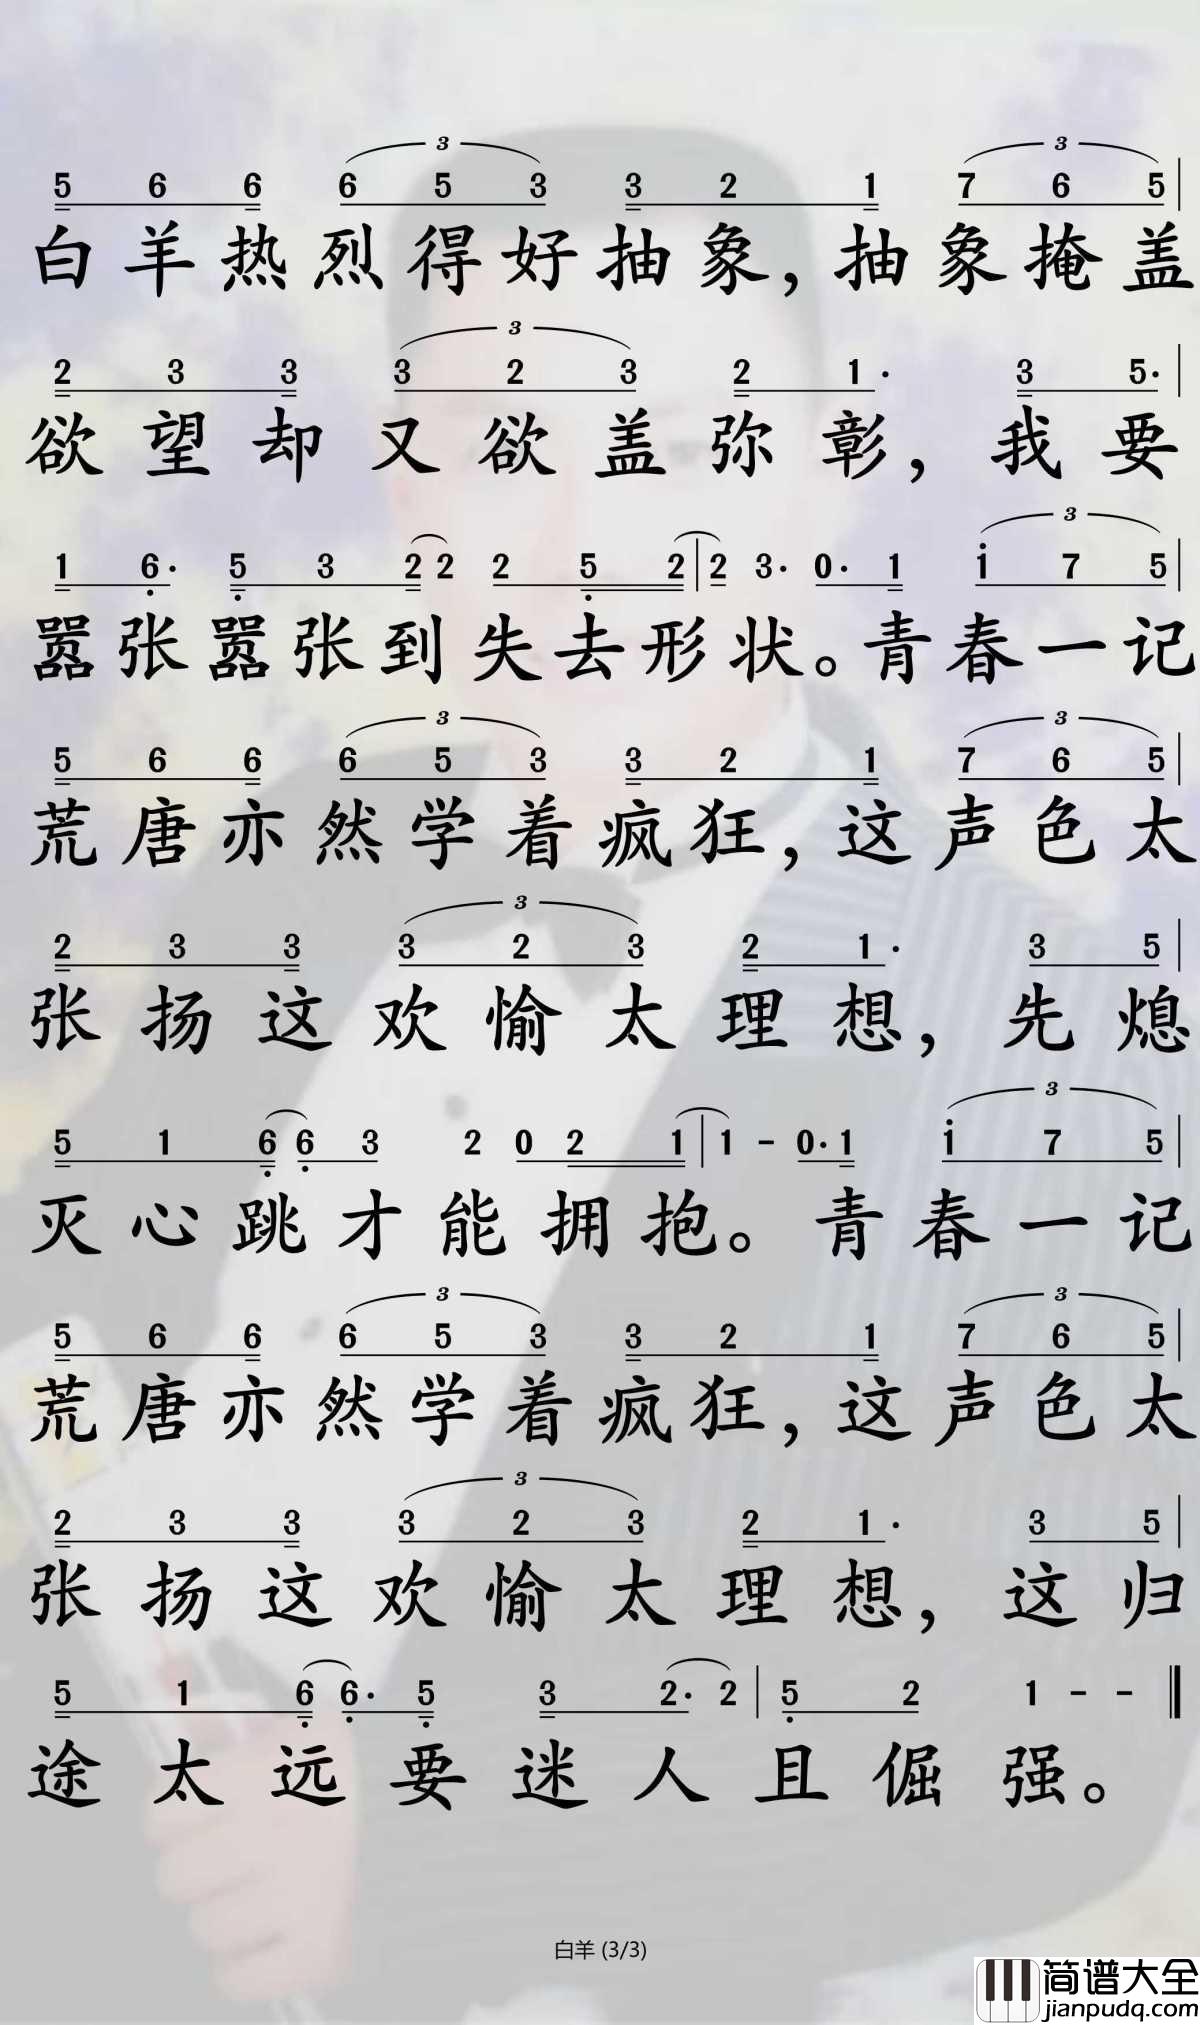 3 3
5 6 6 6 5 3 3 2 1 7 6 5
白羊热烈得好抽象，抽象掩盖
3
2 3 3 3 2 3 2 1· 3 5·
欲望却又欲盖弥彰，我要
3
1 6· 5 3 2 2 2 5 2 2 3· 0· 1 1 7 5
嚣张嚣张到失去形状。青春一记
3 3
5 6 6 6 5 3 3 2 1 7 6 5
荒唐亦然学着疯狂，这声色太
3
2 3 3 3 2 3 2 1· 3 5
张扬这欢愉太理想，先熄
3
5 1 6 6 3 2 0 2 1 1 - 0· 1 1 7 5
灭心跳才能拥抱。青春一记
3 3
5 6 6 6 5 3 3 2 1 7 6 5
荒唐亦然学着疯狂，这声色太
3
2 3 3 3 2 3 2 1· 3 5
张扬这欢愉太理想，这归
5 1 6 6· 5 3 2· 2 5 2 1 - -
途太远要迷人且倔强。
白羊 (3/3)
简谱大全
jianpudq.com